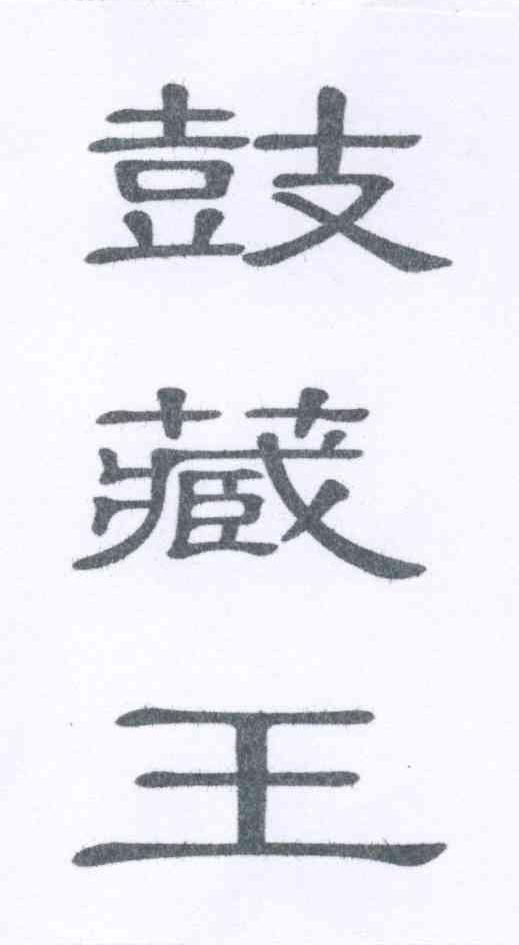 鼓藏王